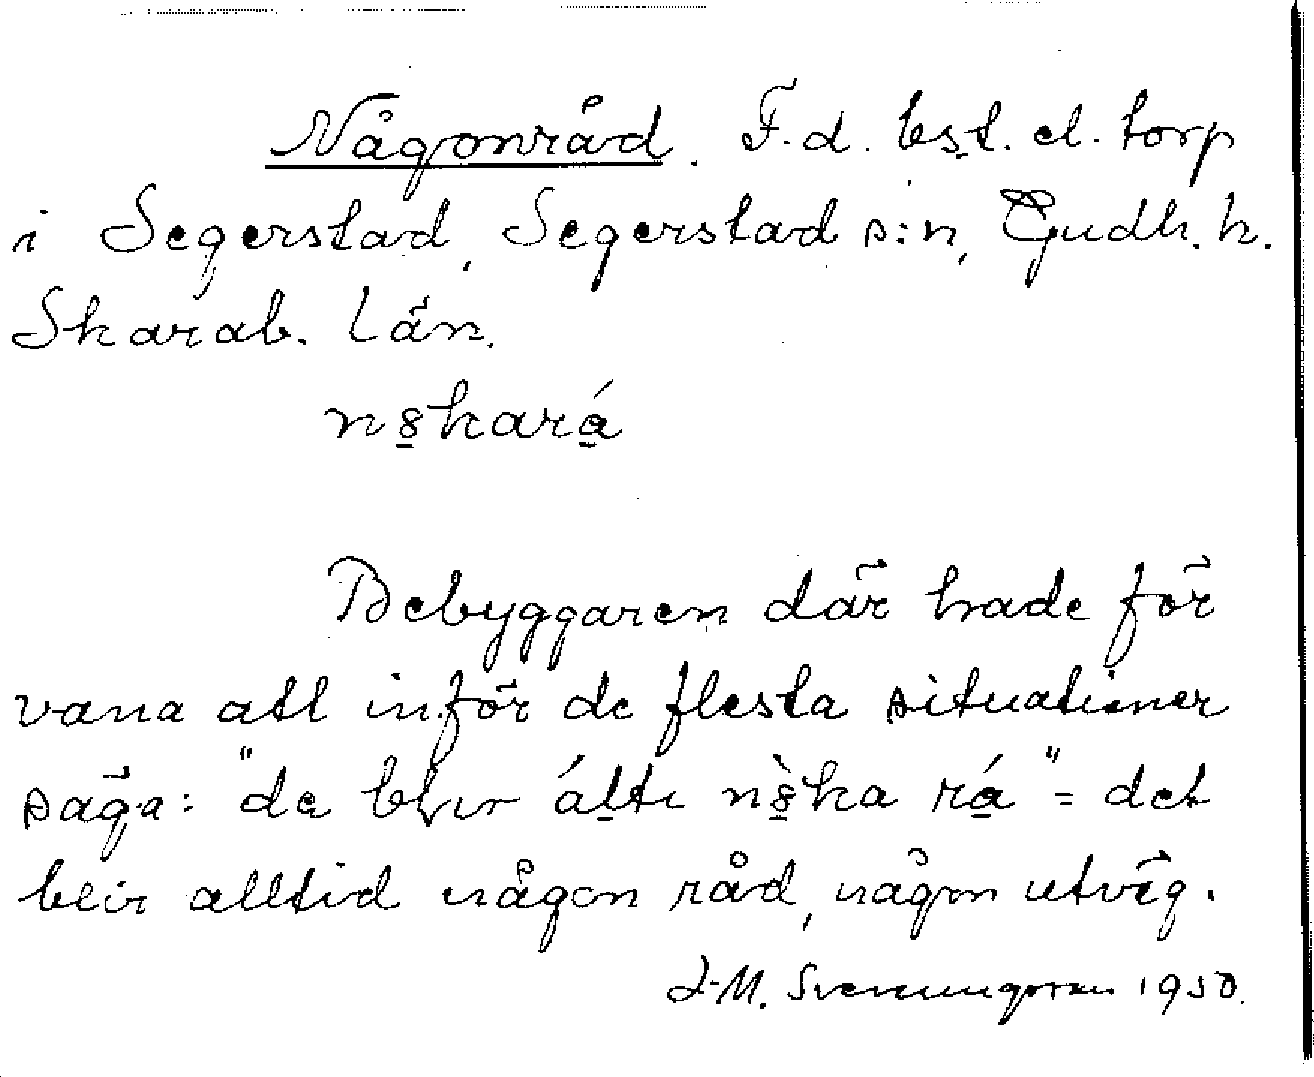 Någonråd. F.d. bst. el. torp
i Segerstad, Segerstad s:n, Gudh. h.
Skarab. län.
n8̲kará̲
Bebyggaren där hade för
vana att inför de flesta situationer
säga: "de blir ál̲ti n8̲̀ka rá̲" = det
blir alltid någon råd, någon utväg.
J.M. Svenungsson 1950.